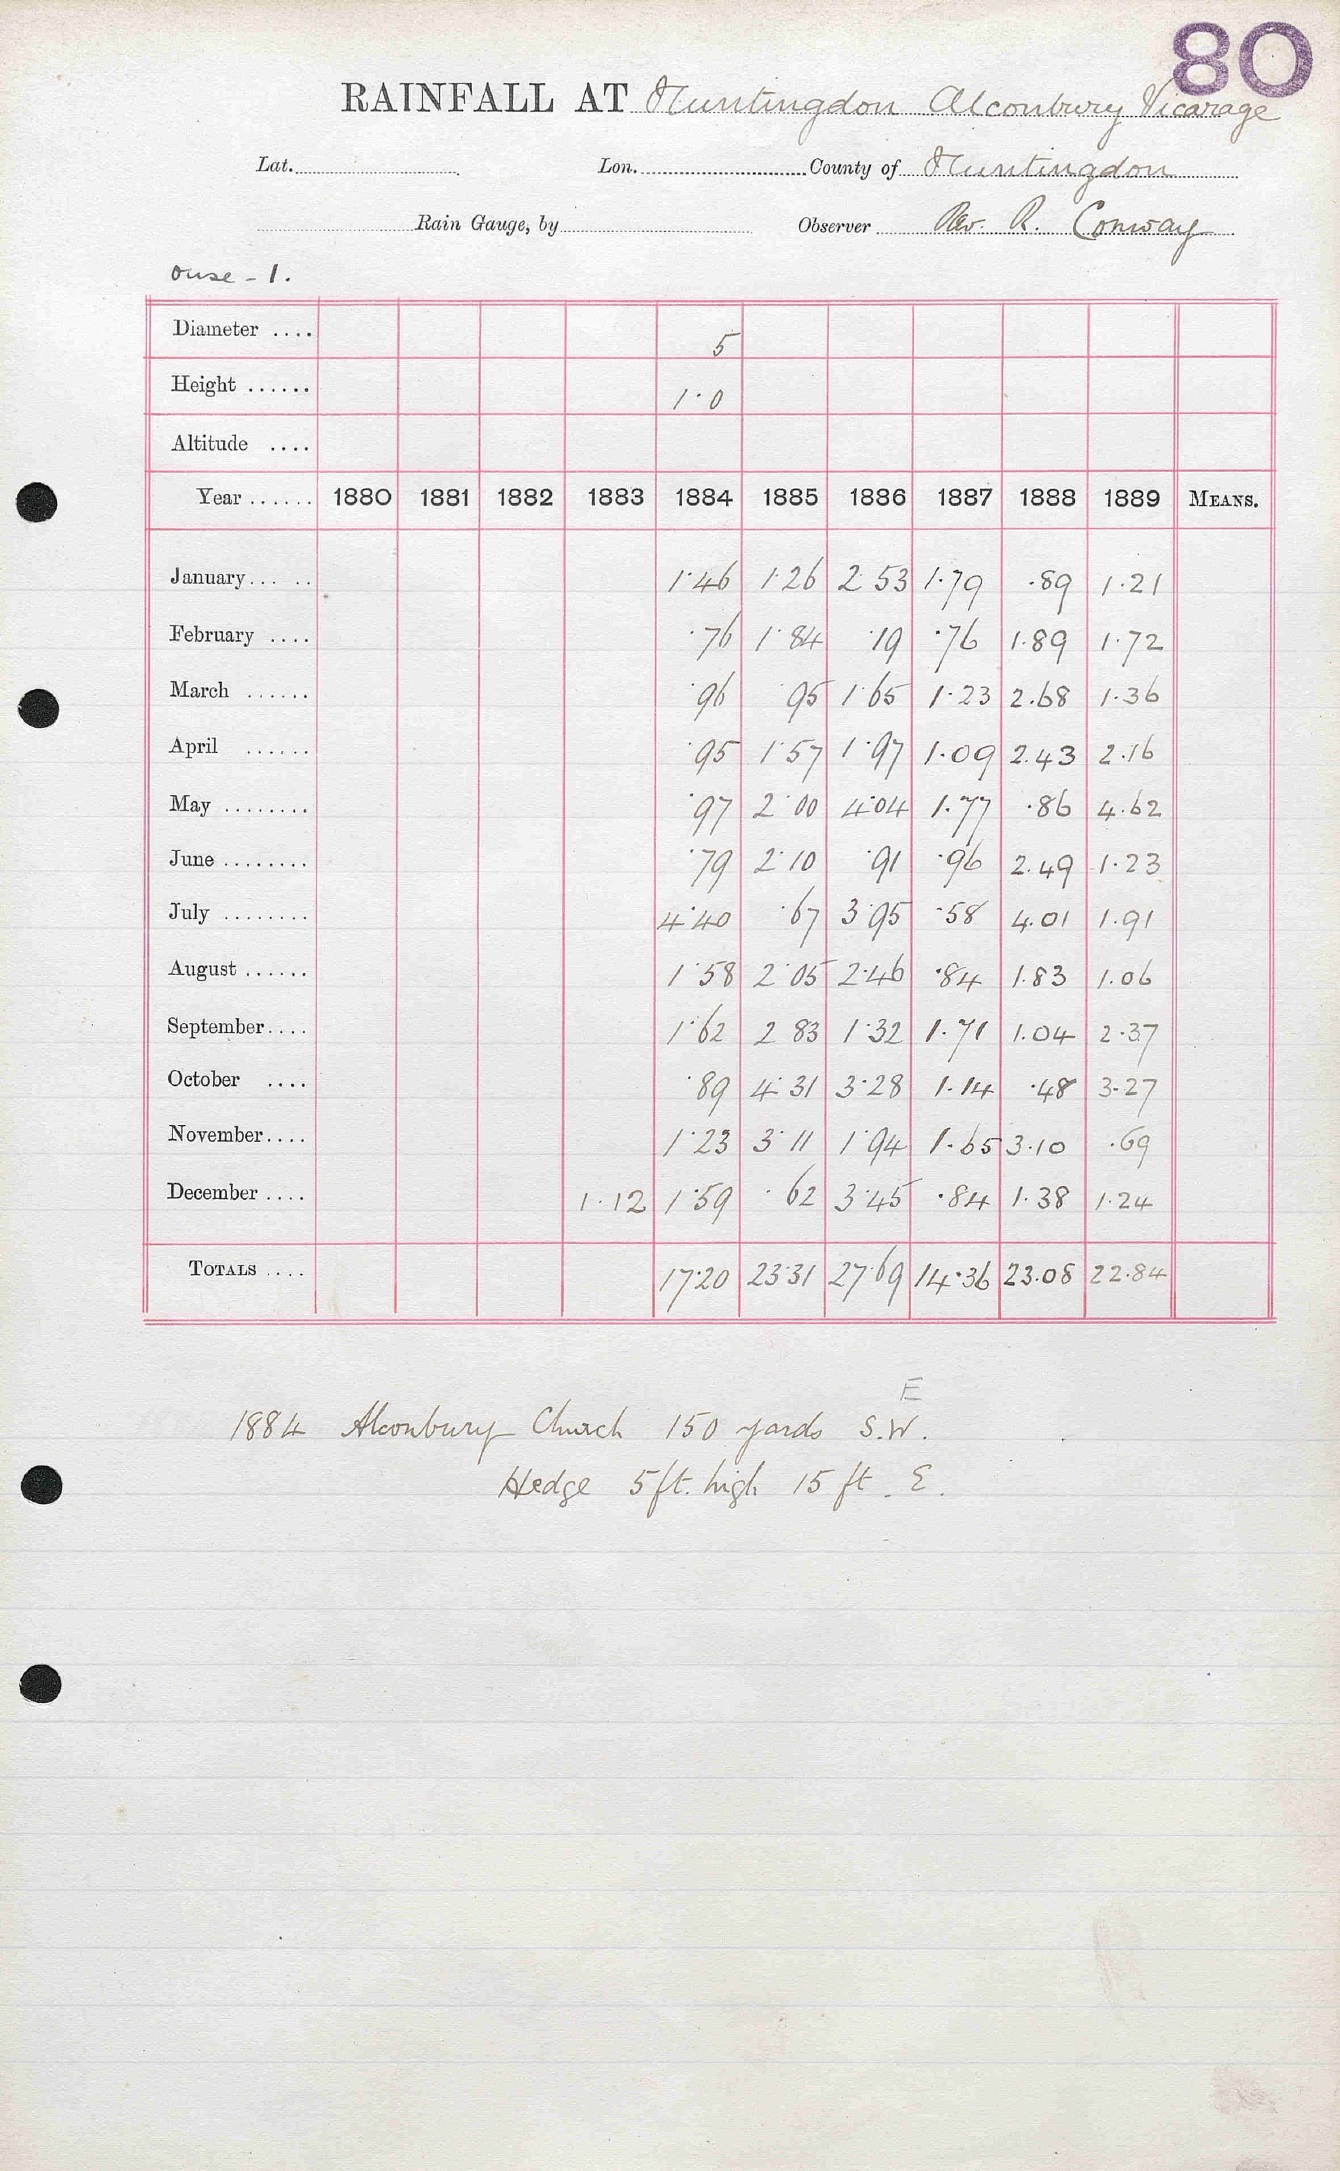 80
RAINFALL AT Huntingdon Alconbury Vicarage
Lat. Lon. County of Huntingdon
Rain Gauge, by Observer Rev. R. Conway
Ouse - 1.
Diameter .... 5
Height ...... 1·0
Altitude ....
Year ...... 1880 1881 1882 1883 1884 1885 1886 1887 1888 1889 MEANS.
January... .. 1·46 1·26 2·53 1·79 ·89 1·21
February .... ·76 1·84 ·19 ·76 1·89 1·72
March ...... ·96 ·95 1·65 1·23 2.68 1·36
April ...... ·95 1·57 1·97 1·09 2.43 2·16
May ........ ·97 2·00 4·04 1·77 ·86 4·62
June ........ ·79 2·10 ·91 ·96 2.49 1·23
July ........ 4·40 ·67 3·95 ·58 4.01 1·91
August ...... 1·58 2·05 2·46 ·84 1.83 1·06
September.... 1·62 2·83 1·32 1·71 1.04 2·37
October .... ·89 4·31 3·28 1·14 ·48 3·27
November.... 1·23 3·11 1·94 1·65 3.10 ·69
December .... 1·12 1·59 ·62 3·45 ·84 1·38 1·24
TOTALS .... 17·20 23·31 27·69 14·36 23.08 22·84
E
1884 Alconbury Church 150 yards S.W.
Hedge 5 ft. high 15 ft. E.